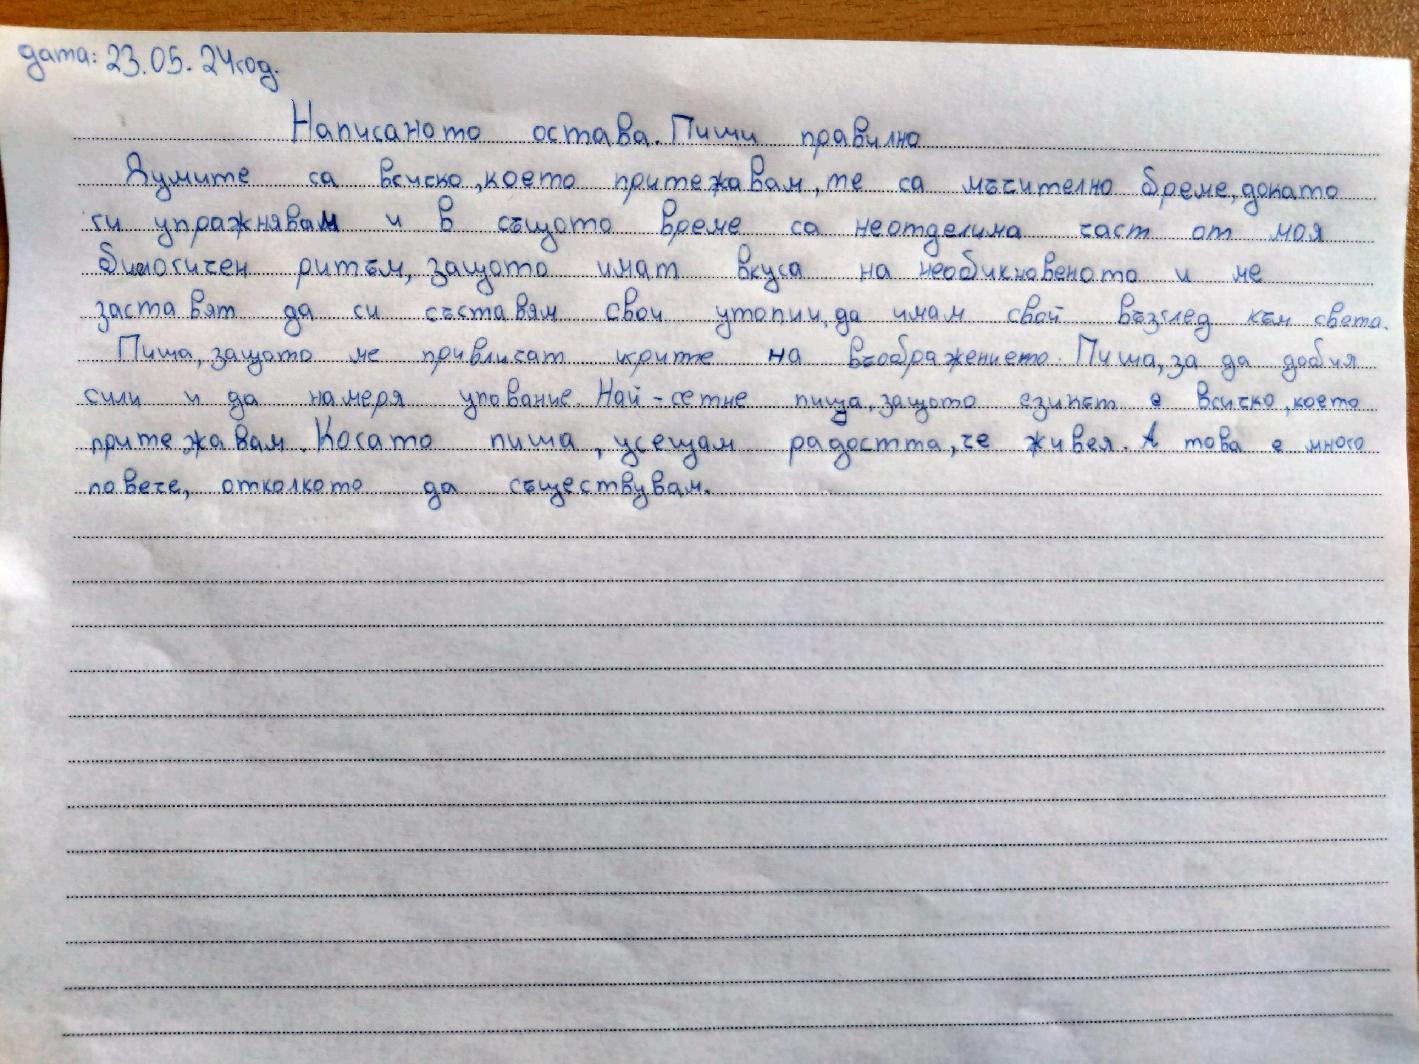 дата: 23.05.24год.
Написаното остава. Пиши правилно
Думите са всичко, което притежавам, те са мъчително бреме, докато
ги упражнявам и в същото време са неотделима част от моя
биологичен ритъм, защото имат вкуса на необикновеното и ме
заставят да си съставям свои утопии, да имам свой възглед към света.
Пиша, защото ме привличат игрите на въображението. Пиша, за да добия
сили и да намеря упование. Най-сетне пиша, защото езикът е всичко, което
притежавам. Когато пиша, усещам радостта, че живея. А това е много
повече, отколкото да съществувам.